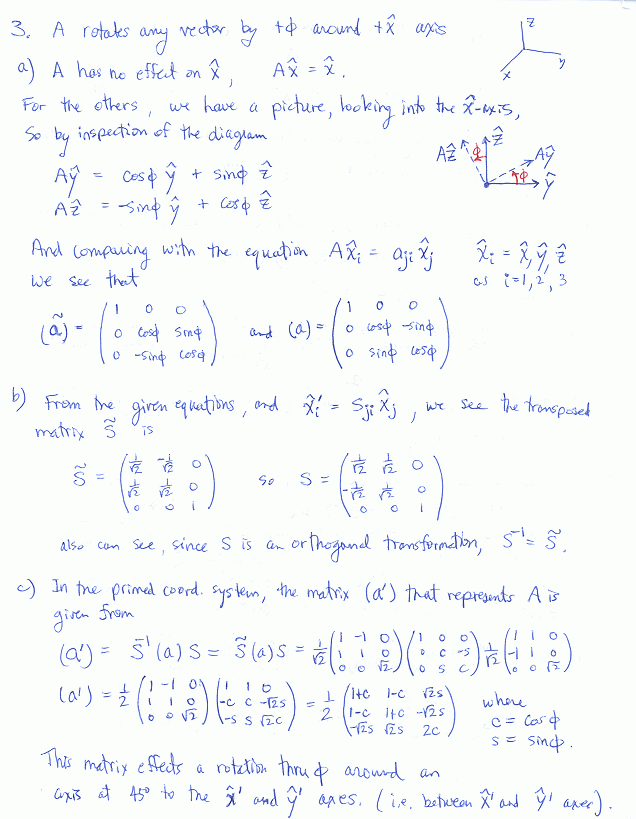 3. A rotates any vector by +ϕ around +x̂ axis
z
y
x
a) A has no effect on x̂, Ax̂ = x̂.
For the others, we have a picture, looking into the x̂-axis,
So by inspection of the diagram
Aẑ ϕ ẑ Aŷ
ϕ ŷ
Aŷ = cosϕ ŷ + sinϕ ẑ
Aẑ = -sinϕ ŷ + cosϕ ẑ
And comparing with the equation Ax̂ᵢ = aⱼᵢ x̂ⱼ x̂ᵢ = x̂, ŷ, ẑ
we see that as i=1, 2, 3
(ã) = (1 0 0; 0 cosϕ sinϕ; 0 -sinϕ cosϕ) and (a) = (1 0 0; 0 cosϕ -sinϕ; 0 sinϕ cosϕ)
b) From the given equations, and x̂ᵢ' = Sⱼᵢ x̂ⱼ, we see the transposed
matrix S̃ is
S̃ = (1/√2 -1/√2 0; 1/√2 1/√2 0; 0 0 1) so S = (1/√2 1/√2 0; -1/√2 1/√2 0; 0 0 1)
also can see, since S is an orthogonal transformation, S⁻¹ = S̃.
c) In the primed coord. system, the matrix (a') that represents A is
given from
(a') = S⁻¹(a)S = S̃(a)S = 1/√2 (1 -1 0; 1 1 0; 0 0 √2) (1 0 0; 0 c -s; 0 s c) 1/√2 (1 1 0; -1 1 0; 0 0 √2)
(a') = 1/2 (1 -1 0; 1 1 0; 0 0 √2) (1 1 0; -c c -√2s; -s s √2c) = 1/2 (1+c 1-c √2s; 1-c 1+c -√2s; -√2s √2s 2c) where
c = cosϕ
s = sinϕ.
This matrix effects a rotation thru ϕ around an
axis at 45° to the x̂' and ŷ' axes. (i.e. between x̂' and ŷ' axes).